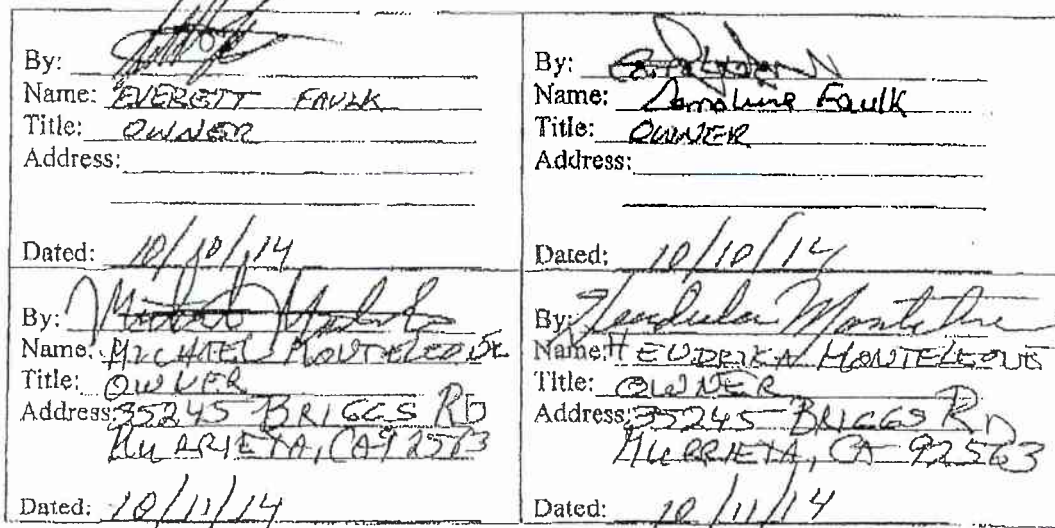 By:
Name: EVERETT FAULK
Title: OWNER
Address:
Dated: 10/10/14
By:
Name: Faulk
Title: OWNER
Address:
Dated: 10/10/14
By:
Name: MICHAEL MONTELEONE
Title: OWNER
Address: 35245 BRIGGS RD
MURRIETA, CA 92563
Dated: 10/11/14
By:
Name: MONTELEONE
Title: OWNER
Address: 35245 BRIGGS RD
MURRIETA, CA 92563
Dated: 10/11/14